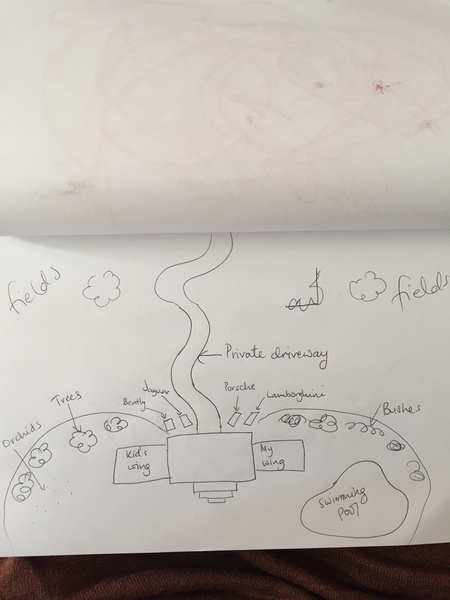 fields
fields
Private driveway
Jaguar
Bently
Porsche
Lamborghini
Trees
Bushes
Orchids
Kid's
wing
My
wing
swimming
pool